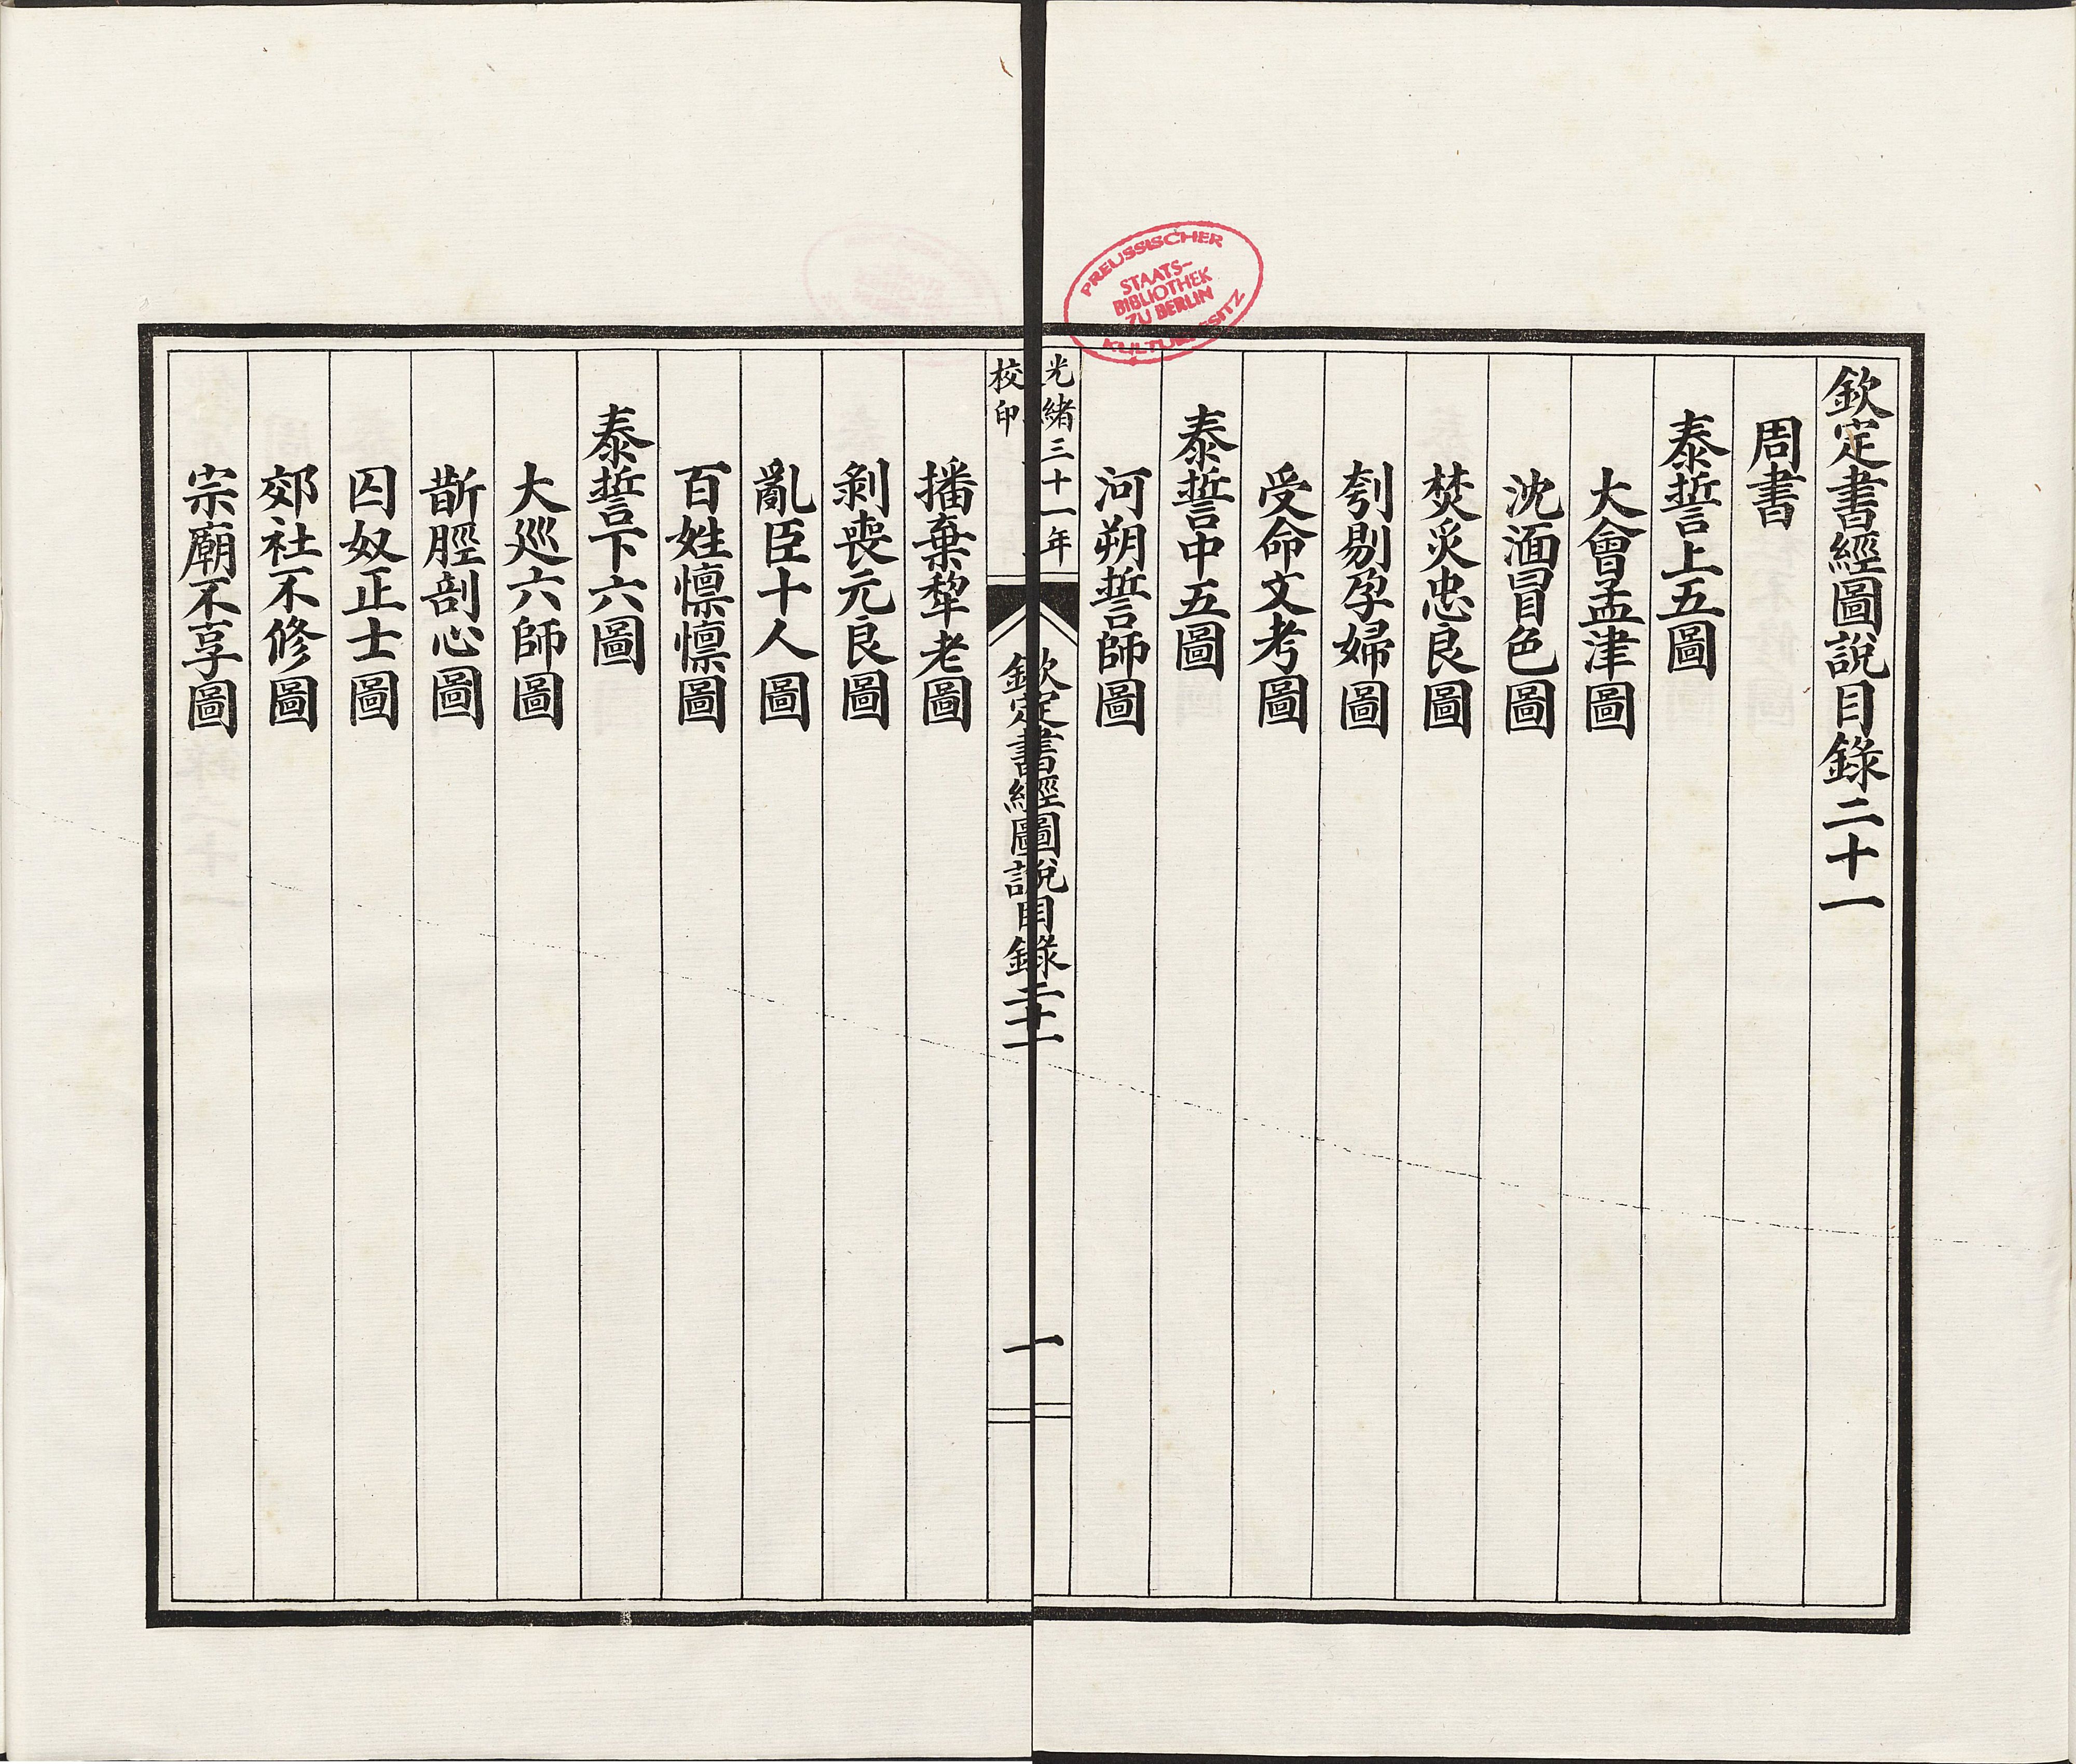 欽定書經圖說目錄二十一
周書
泰誓上五圖
大會孟津圖
沈湎冒色圖
焚炙忠良圖
刳剔孕婦圖
受命文考圖
泰誓中五圖
河朔誓師圖
光緒三十一年
校印
欽定書經圖說目錄二十一
一
播棄犂老圖
剝喪元良圖
亂臣十人圖
百姓懍懍圖
泰誓下六圖
大巡六師圖
斮脛剖心圖
囚奴正士圖
郊社不修圖
宗廟不享圖
PREUSSISCHER
STAATS-
BIBLIOTHEK
ZU BERLIN